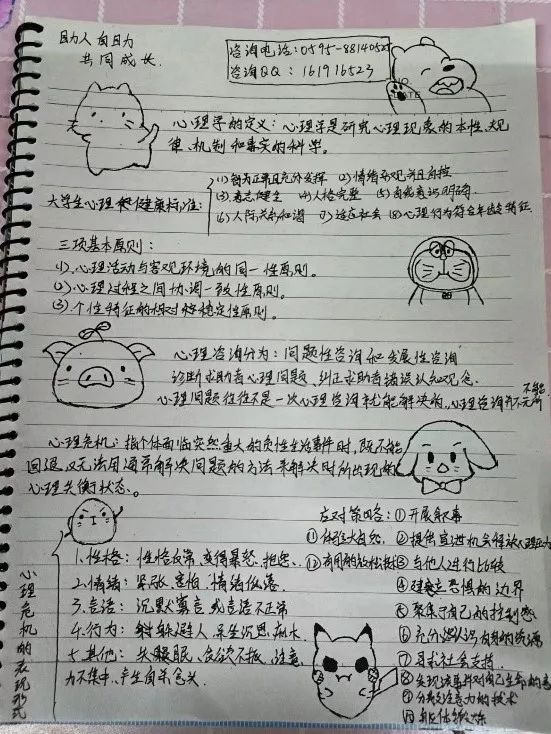 助人自助
共同成长.
咨询电话:0595-8814052
咨询QQ:161916523
心理学的定义:心理学是研究心理现象的本性、规
律、机制和事实的科学。
大学生心理健康标准:
(1)智力正常且充分发挥 (2)情绪客观并且自控
(3)意志健全 (4)人格完整 (5)自我意识明确
(6)人际关系和谐 (7)适应社会 (8)心理行为符合年龄特征
三项基本原则:
(1)、心理活动与客观环境的同一性原则。
(2)心理过程之间协调一致性原则。
(3)个性特征的相对稳定性原则。
心理咨询分为:问题性咨询和发展性咨询
诊断求助者心理问题、纠正求助者错误认知观念.
心理问题往往不是一次心理咨询就能解决的,心理咨询并不无所
不能
心理危机:指个体面临突然重大的负性生活事件时,既不能
回避又无法用通常解决问题的方法来解决时所出现的
心理失衡状态。
心理危机的表现形式
1.性格:性格反常,变得暴怒、抱怨.
2.情绪:紧张、害怕 情绪低落.
3.言语:沉默寡言 或言语不正常
4.行为:躲避人、呆坐沉思
5.其他:失眠、食欲不振、注意
力不集中、产生自杀念头.
应对策略:①开展叙事
①体验大自然. ②提供宣泄机会
⑫有用的放松技 ③与他人进行比较
④建立恐惧的边界
⑤聚集于自己的控制感
⑥充分认识自身的资源
⑦寻求社会支持
⑧发现该事件对自己生命的意
⑨分散注意力的技术
⑩身体锻炼